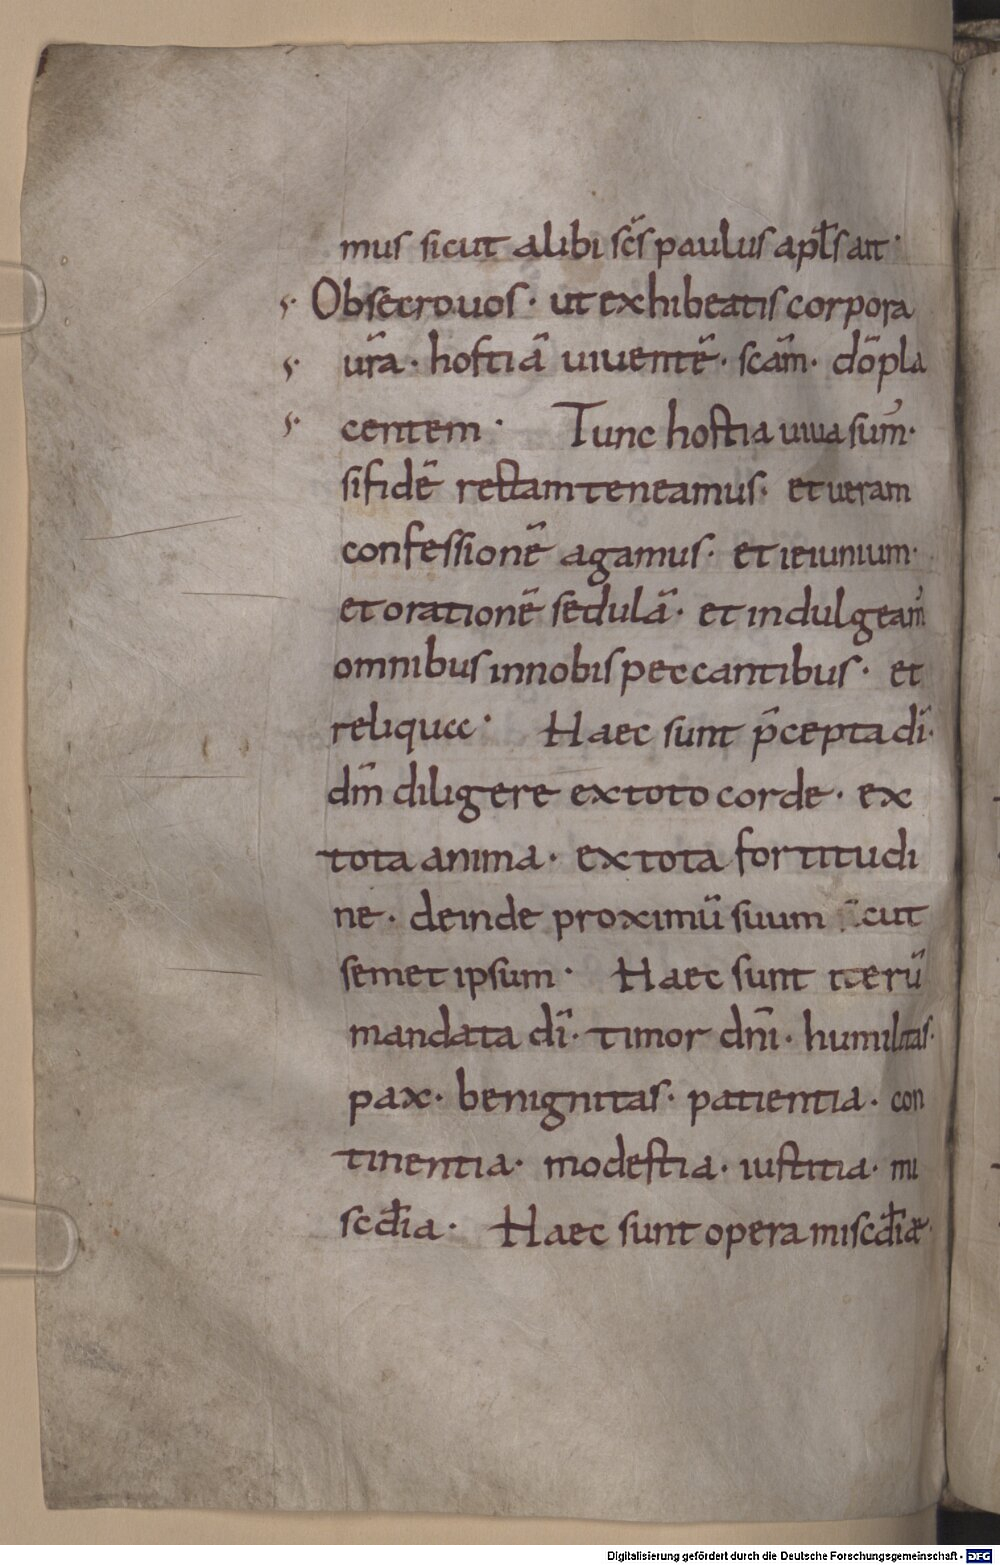 mus sicut alibi sc̄s paulus apl̄s ait·
Obsecro uos· ut exhibeatis corpora
ur̄a· hostiā uiuentē· scām· dō pla
centem· Tunc hostia uiua sum̄·
si fidē rectam teneamus· et ueram
confessionē agamus· et ieiunium·
et orationē sedulā· et indulgeam̄
omnibus in nobis peccantibus· et
reliqua· Haec sunt p̄cepta dī·
dn̄m diligere ex toto corde· ex
tota anima· ex tota fortitudi
ne· deinde proximū suum sicut
semet ipsum· Haec sunt iterū
mandata dī· timor dn̄i· humilitas·
pax· benignitas· patientia· con
tinentia· modestia· iustitia· mi
scd̄ia· Haec sunt opera miscd̄iae·
Digitalisierung gefördert durch die Deutsche Forschungsgemeinschaft - DFG